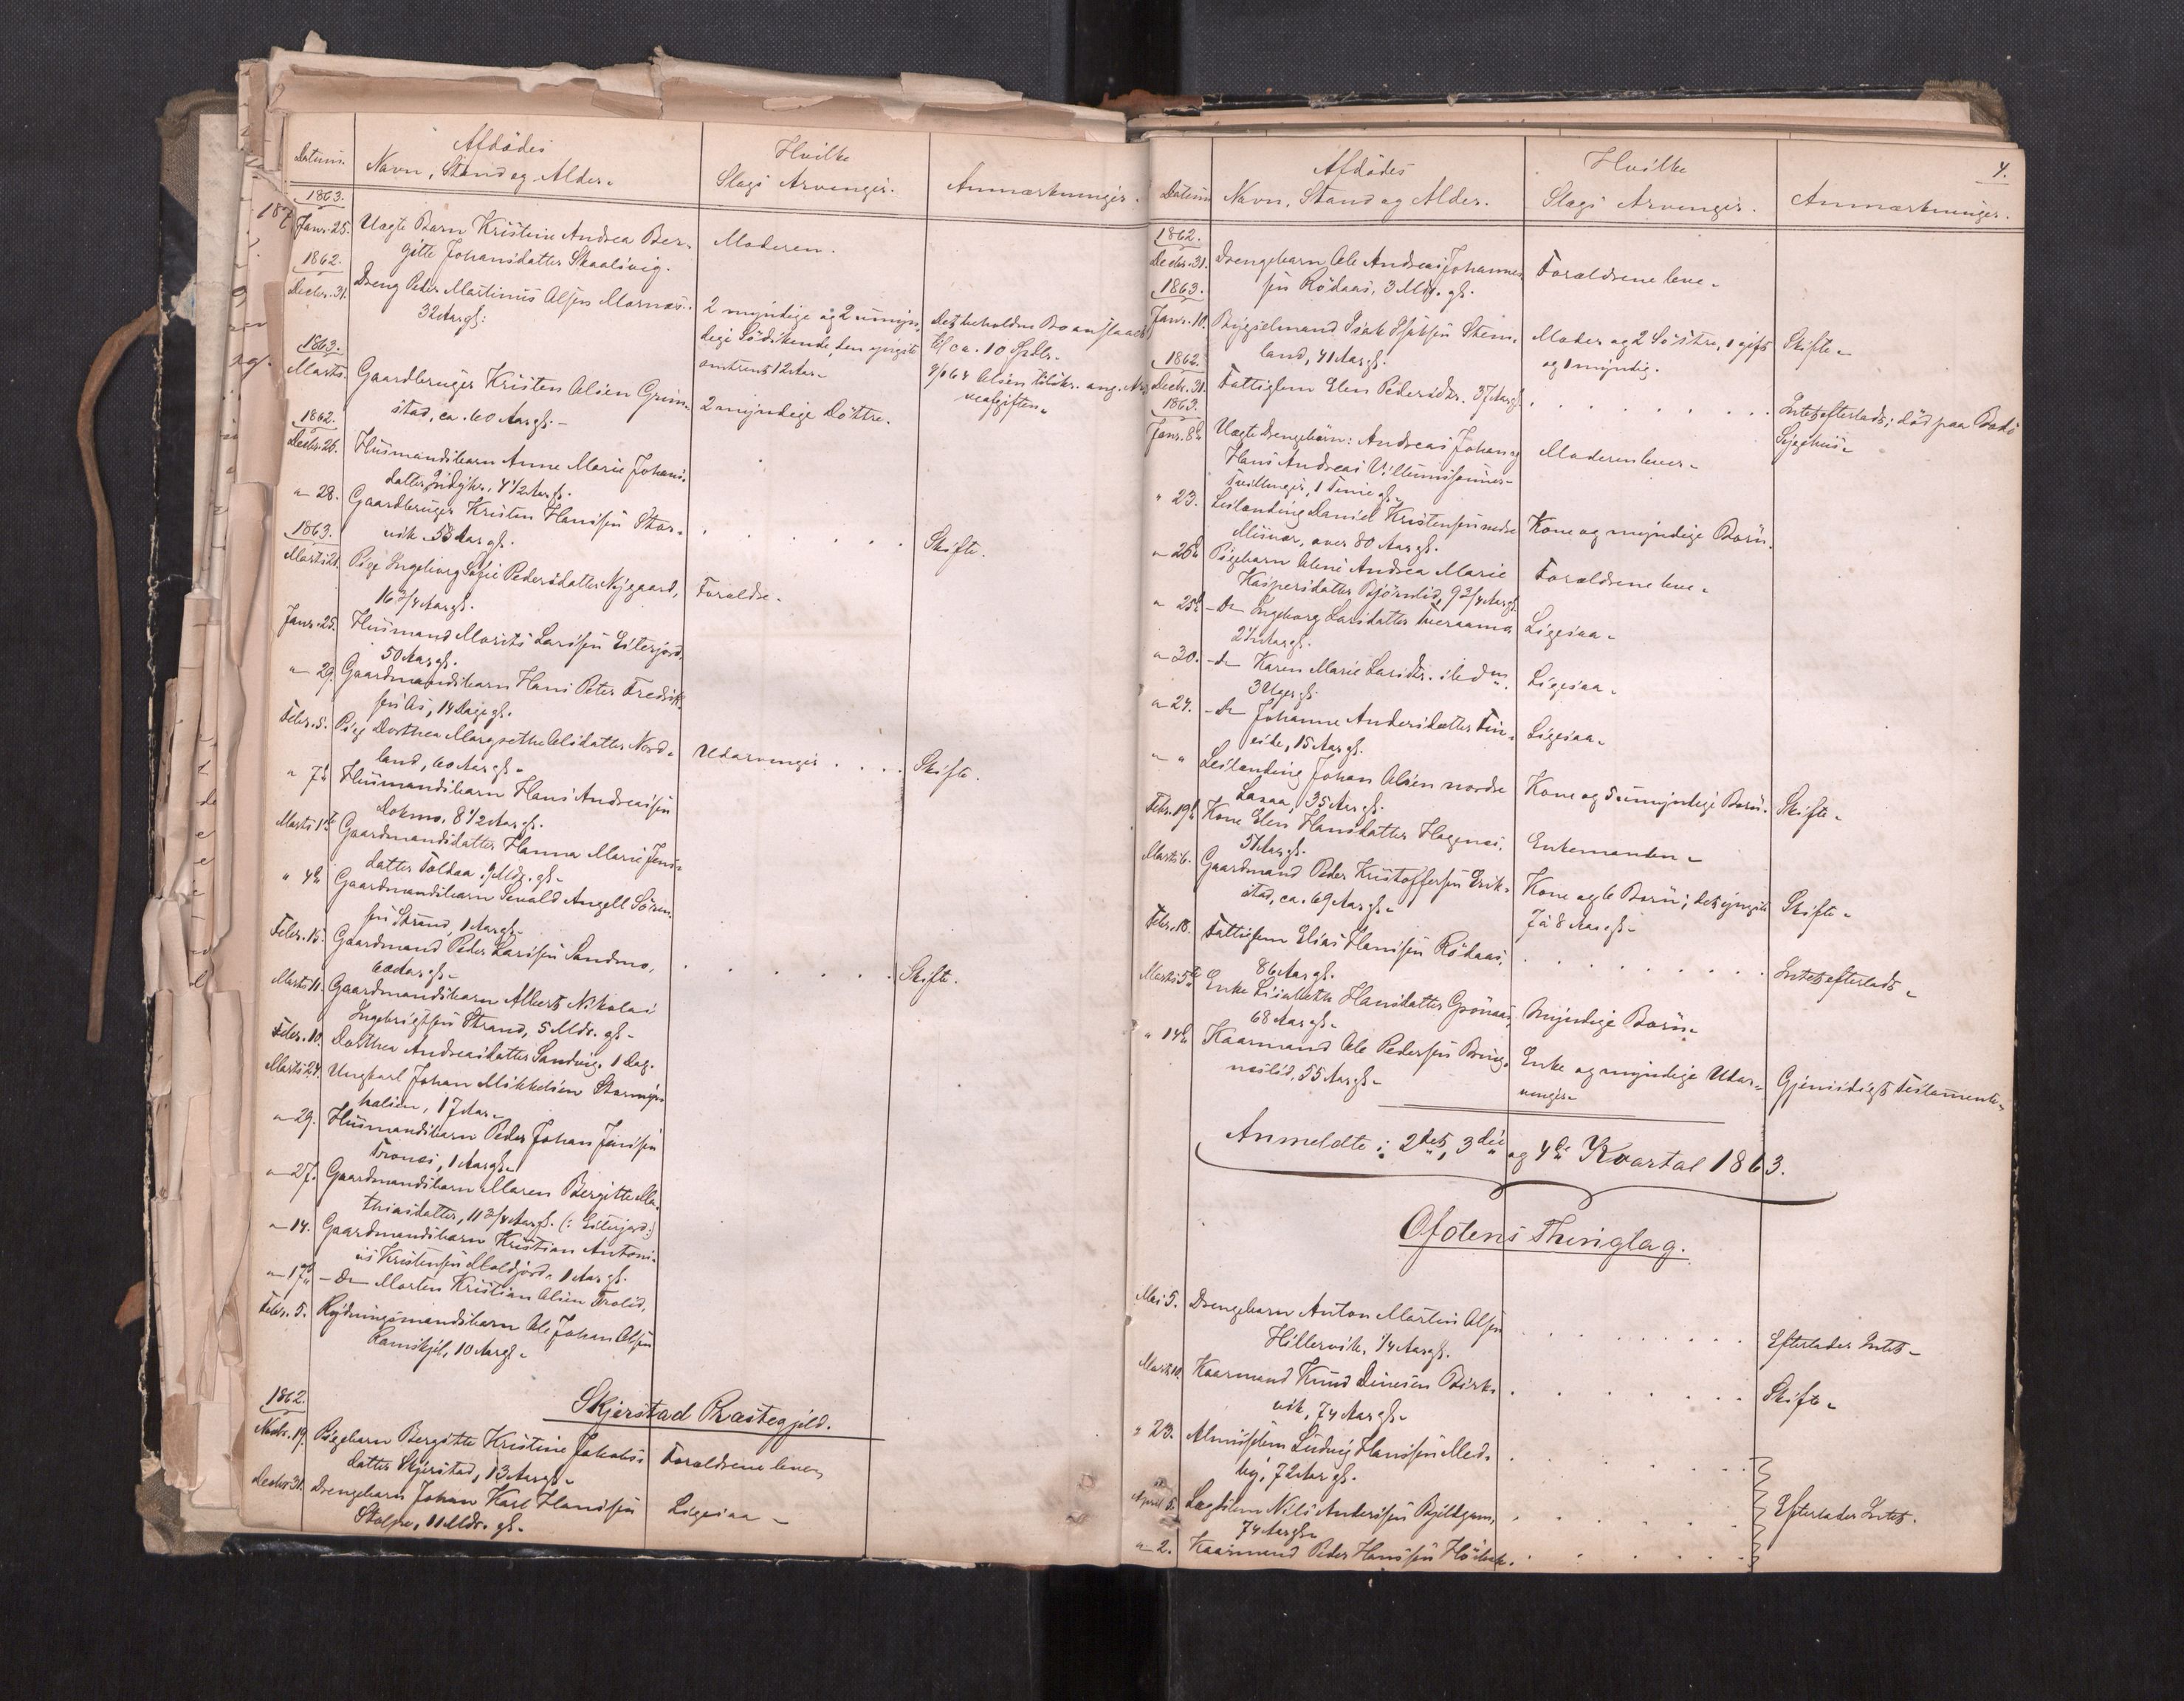 Datum.
Afdödes
Navn, Stand og Alder.
Hvilke
Slags Arvinger.
Anmærkninger.
1863.
Janr. 25. Uægte Barn Kristine Andrea Ber-
gitte Johansdatter Skaalsvig.
Moderen.
1862.
Decbr. 31. Dreng Peder Martinus Olsen
32 Aar gl:
2 myndige og 2 umyn-
dige Södskende, den yngste
omtrent 12 Aar
Det beholdne Bo anslaaet
til ca. 10 Spdlr.
1863.
Marts. Gaardbruger Kristen Olsen Grim-
stad, ca. 60 Aar gl. -
2 myndige Döttre.
1862.
Decbr. 26. Husmandsbarn Anne Marie Johans-
datter 4 1/2 Aar gl.
" 28. Gaardbruger Kristen Hansen Stor-
vik 58 Aar gl.
Skifte.
1863.
Marts 21. Pige Ingeborg Sofie Pedersdatter Nygaard,
16 3/4 Aar gl.
Foreldre.
Janr. 25. Husmand Morits Larssen Esterjord,
50 Aar gl.
" 29. Gaardmandsbarn Hans Peter Fredrik-
sen As, 14 Dage gl.
Febr. 5. Pige Dorthea Margrethe Olsdatter Nord-
land, 60 Aar gl.
Udarvinger . . . .
Skifte.
" 7de Husmandsbarn Hans Andreassen
Dokmo, 8 1/2 Aar gl.
Marts 1ste Gaardmandsdatter Hanna Marie Jens-
datter Toldaa 9 Mdr. gl.
" 4de Gaardmandsbarn Sevald Angell Sören-
sen Strand, 1 Aar gl.
Febr. 15. Gaardmand Peder Larssen Sandmo,
60 Aar gl.
Skifte.
Marts 11. Gaardmandsbarn Albert Nikolai
Ingebrigtsen Strand, 5 Mdr. gl.
Febr. 10. Dorthea Andreasdatter Sandvig, 1 Dag.
Marts 24. Ungkarl Johan Mikkelsen Stormyr-
halsen, 17 Aar
" 29. Husmandsbarn Peder Johan Jenssen
Trones, 1 Aar gl.
" 27. Gaardmandsbarn Maren Bergitte Ma-
thiasdatter, 11 3/4 Aar gl. (: Esterjord :)
" 14. Gaardmandsbarn Kristian Antoni-
us Kristensen Moldjord, 1 Aar gl.
" 17de - Do - Morten Kristian Olsen Trolid,
Febr. 5. Rydningsmandsbarn Ole Johan Olsen
Ramskjel, 10 Aar gl.
Skjerstad Præstegjeld.
1862.
Novbr. 19. Pigebarn Bergitte Kristine Jakobs-
datter Skjerstad, 13 Aar gl.
Foreldrene lever
Decbr. 31. Drengebarn Johan Karl Hanssen
Stolpe, 11 Mdr. gl.
Ligesaa -
4.
Datum
Afdödes
Navn, Stand og Alder.
Hvilke
Slags Arvinger.
Anmærkninger.
1862.
Decbr. 31. Drengebarn Ole Andreas Johannes-
sen Rödaas, 3 Mdr. gl.
Forældrene leve -
1863.
Janr. 10. Bygselmand Isak Isaksen Stem-
land, 41 Aar gl.
Moder og 2 Söstre, 1 gift
og 1 myndig.
Skifte -
1862.
Decbr. 31. Fattiglem Elen Pedersdtr. 37 Aar gl.
Intet efterladt; död paa Bodö
Sygehus -
1863.
Janr. 8de Uægte Drengebörn: Andreas Johan og
Hans Andreas Villumssönner -
Tvillinger, 1 Time gl.
Moderen lever -
" 23. Leilænding Daniel Kristensen nedre
Misvær, over 80 Aar gl.
Kone og myndige Börn.
" 26de Pigebarn Oline Andrea Marie
Kaspersdatter Björnlid, 9 3/4 Aar gl.
Forældrene leve -
" 25de - Do - Ingeborg Larsdatter Tveraamo
2 1/2 Aar gl.
Ligesaa -
" 30. - Do - Karen Marie Larsdtr. ibdm.
3 Uger gl.
Ligesaa -
" 24. - Do - Johanne Andersdatter Fin-
eide, 15 Aar gl.
Ligesaa -
" " Leilænding Johan Olsen nordre
Laxaa, 35 Aar gl.
Kone og 5 umyndige Börn.
Skifte -
Febr. 19de Kone Elen Hansdatter Hagenes,
51 Aar gl.
Enkemanden -
Marts 6. Gaardmand Peder Kristoffersen Erik-
stad, ca. 69 Aar gl.
Kone og 6 Börn; det yngste
7 à 8 Aar gl.
Skifte -
Febr. 18. Fattiglem Elias Hanssen Rödaas,
86 Aar gl.
Intet efterladt -
Marts 5te Enke Lisabeth Hansdatter Grönaas
68 Aar gl.
Myndige Börn -
" 14de Kaarmand Ole Pedersen Bring-
neslid, 55 Aar gl.
Enke og myndige Udar-
vinger
Gjensidigt Testamente -
Anmeldte i 2det, 3die og 4de Kvartal 1863.
Ofotens Thinglag.
Mai 5. Drengebarn Anton Martin Olsen
Hillervik, 1/4 Aar gl.
Efterlader Intet -
Marts 10. Kaarmand Knud Dinesen Bjerk-
vik, 74 Aar gl.
Skifte -
" 23. Almisselem Ludvig Hanssen Med-
by, 72 Aar gl.
April 5. Lægdslem Nils Anderssen
74 Aar gl.
Efterlader Intet.
" 2. Kaarmand Peder Hanssen